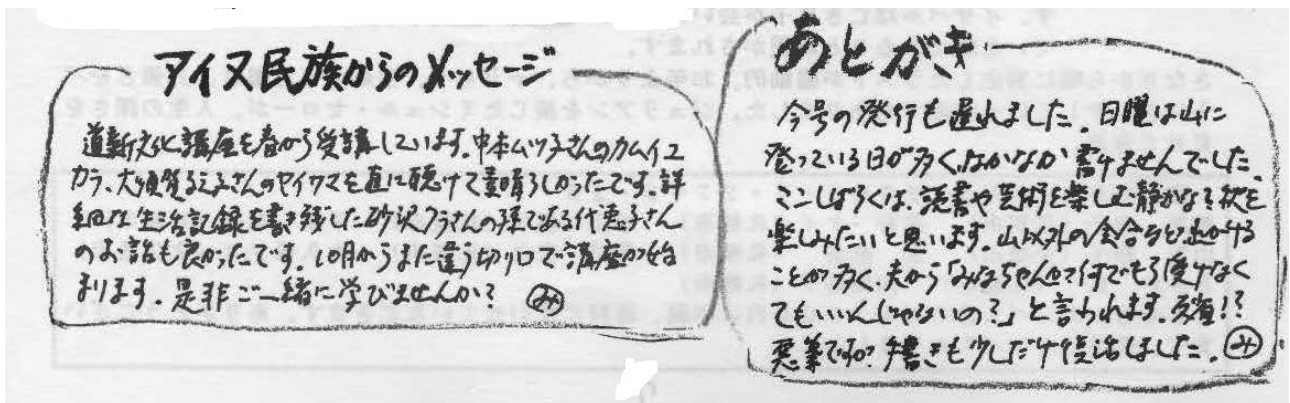 アイヌ民族からのメッセージ
道新文化講座を春から受講しています。中本ムツ子さんのカムイユ
カラ、大須賀るえ子さんのヤイサマも直に聴けて素晴らしかったです。詳
細な生活記録を書き残した砂沢クラさんの孫である代恵子さん
のお話も良かったです。10月からまた違う切り口で講座が始
まります。是非ご一緒に学びませんか? み
あとがき
今号の発行も遅れました。日曜は山に
登っている日が多く、なかなか書けませんでした。
ここしばらくは、読書や芸術を楽しむ静かな秋を
楽しみたいと思います。山以外の会合など出かける
ことが多く、夫から「みなちゃん何でも引受けなく
てもいいんじゃないの?」と言われます。反省!?
悪筆ですが手書きも少しだけ復活しました。み